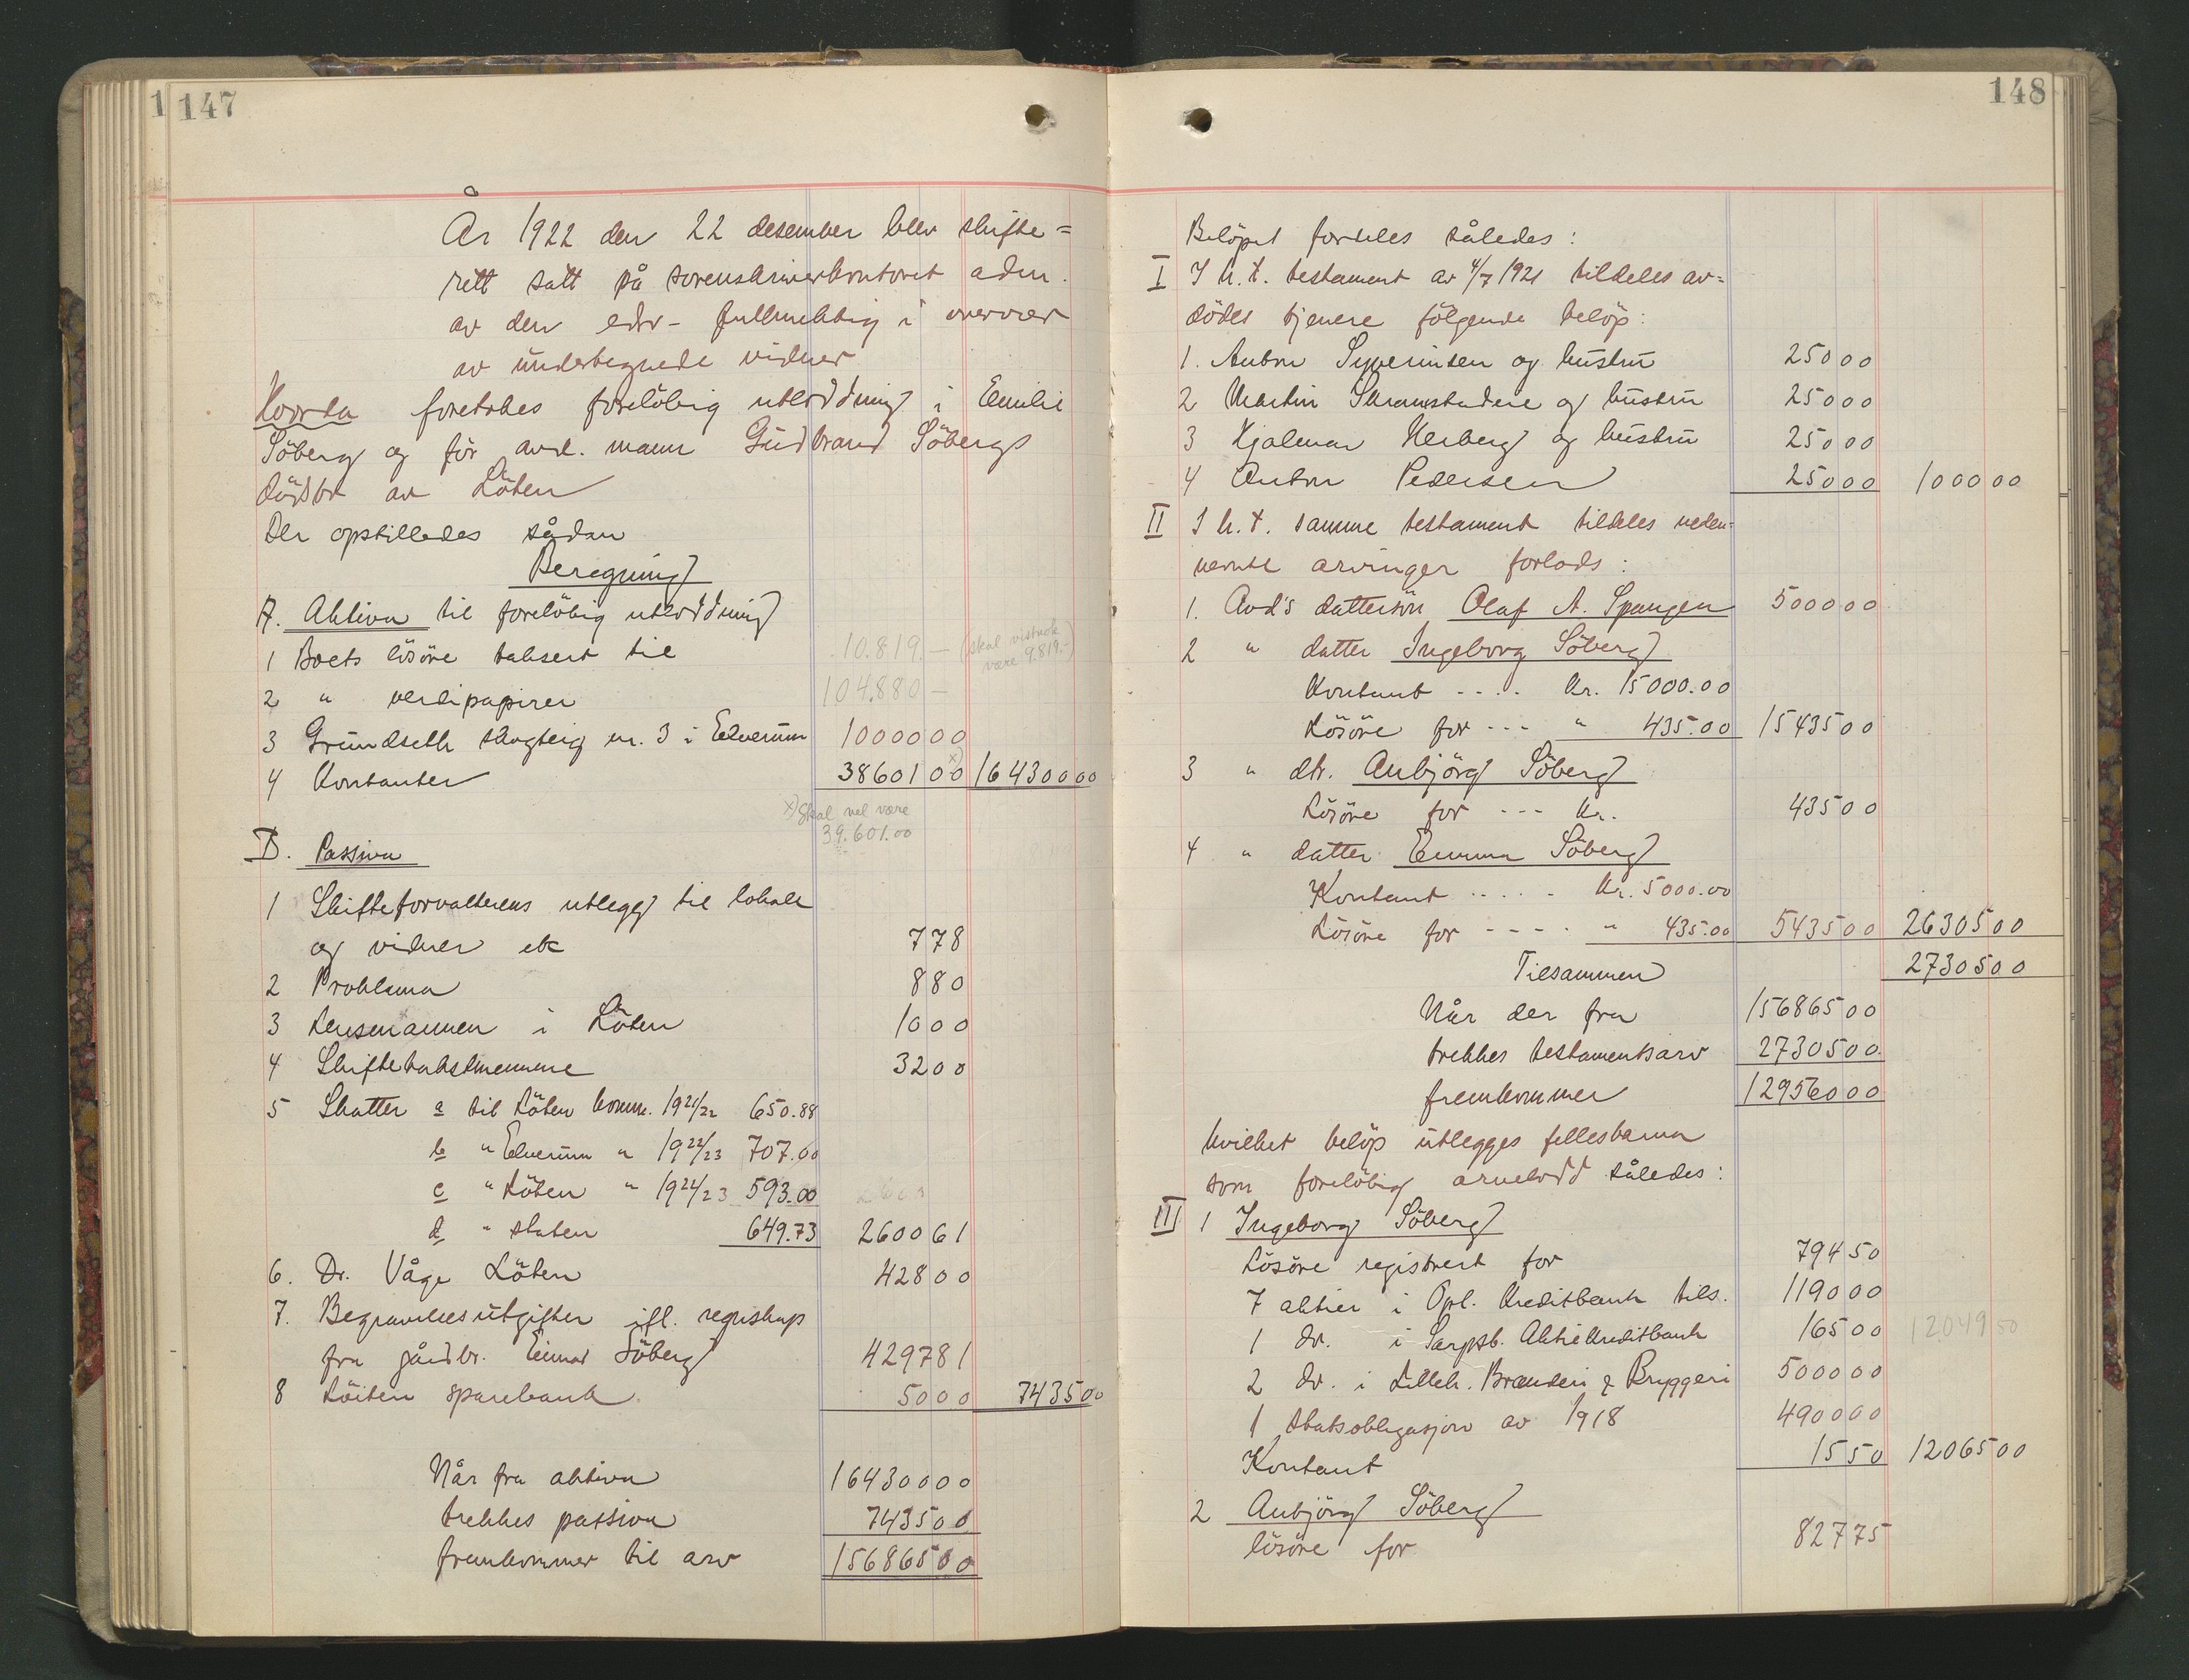 1 147
År 1922 den 22 desember blev skifte=
rett satt på sorenskriverkontoret adm.
av den edsv- fullmektig i overvær
av undertegnede vidner
Hvorda foretokes foreløbig utlodning i Emilie
Söberg og før avd. mann Gudbrand Söbergs
dødsbo av Löten
Der opstilledes sådan
Beregning
A. Aktiva til foreløbig utlodning
1 Boets lösöre taksert til 10.819.- (skal vistnok
være 9.819.-)
2 " verdipapirer 104.880 -
3 Grundseth skogteig nr. 3 i Elverum 10000 00
4 Kontanter 38601 00 x) 164300 00
x) Skal vel være
39.601.00
B. Passiva
1 Skifteforvalterens utlegg til lokale
og vidner etc 7 78
2 Proklama 8 80
3 Lensmannen i Löten 10 00
4 Skiftetakstmennene 32 00
5 Skatter a til Löten komm. 1921/22 650.88
b " Elverum " 1922/23 707.00
c " Löten " 1922/23 593.00
d " staten 649.73 2600 61
6. Dr. Våge Löten 428 00
7. Begravelsesutgifter ifl. regnskap
fra gårdbr. Einar Söberg 4297 81
8 Löiten sparebank 50 00 7435 00
Når fra aktiva 164300 00
trekkes passiva 7435 00
fremkommer til arv 156865 00
148
Belöpet fordeles således:
I I h.t. testament av 4/7 1921 tildeles av=
dödes tjenere fölgende belöp:
1. Anton Syverinsen og hustru 250 00
2 Martin Skramstadeie og hustru 250 00
3 Hjalmar Herberg og hustru 250 00
4 Anton Pedersen 250 00 1000 00
II I h.t. samme testament tildeles neden=
nevnte arvinger forlods:
1. Avd's dattersön Olaf A. Spangen 5000 00
2 " datter Ingeborg Söberg
Kontant .... kr. 15000.00
Lösöre for --- " 435.00 15435 00
3 " dtr. Anbjörg Söberg
Lösöre for --- kr. 435 00
4 " datter Emma Söberg
Kontant ..... kr. 5000.00
Lösöre for ---- " 435.00 5435 00 26305 00
Tilsammen 27305 00
Når der fra 156865 00
trekkes testamentsarv 27305 00
fremkommer 129560 00
hvilket belöp utlegges fellesbarna
som foreløbig arvelodd således:
III 1 Ingeborg Söberg
Lösöre registrert for 794 50
7 aktier i Opl. Kreditbank tils. 1190 00
1 do. i Sarpsb. Aktiekreditbank 165 00 12049 50
2 do. i Lilleh. Brænderi & Bryggeri 5000 00
1 statsobligasjon av 1918 4900 00
Kontant 15 50 12065 00
2 Anbjörg Söberg
lösöre for 827 75